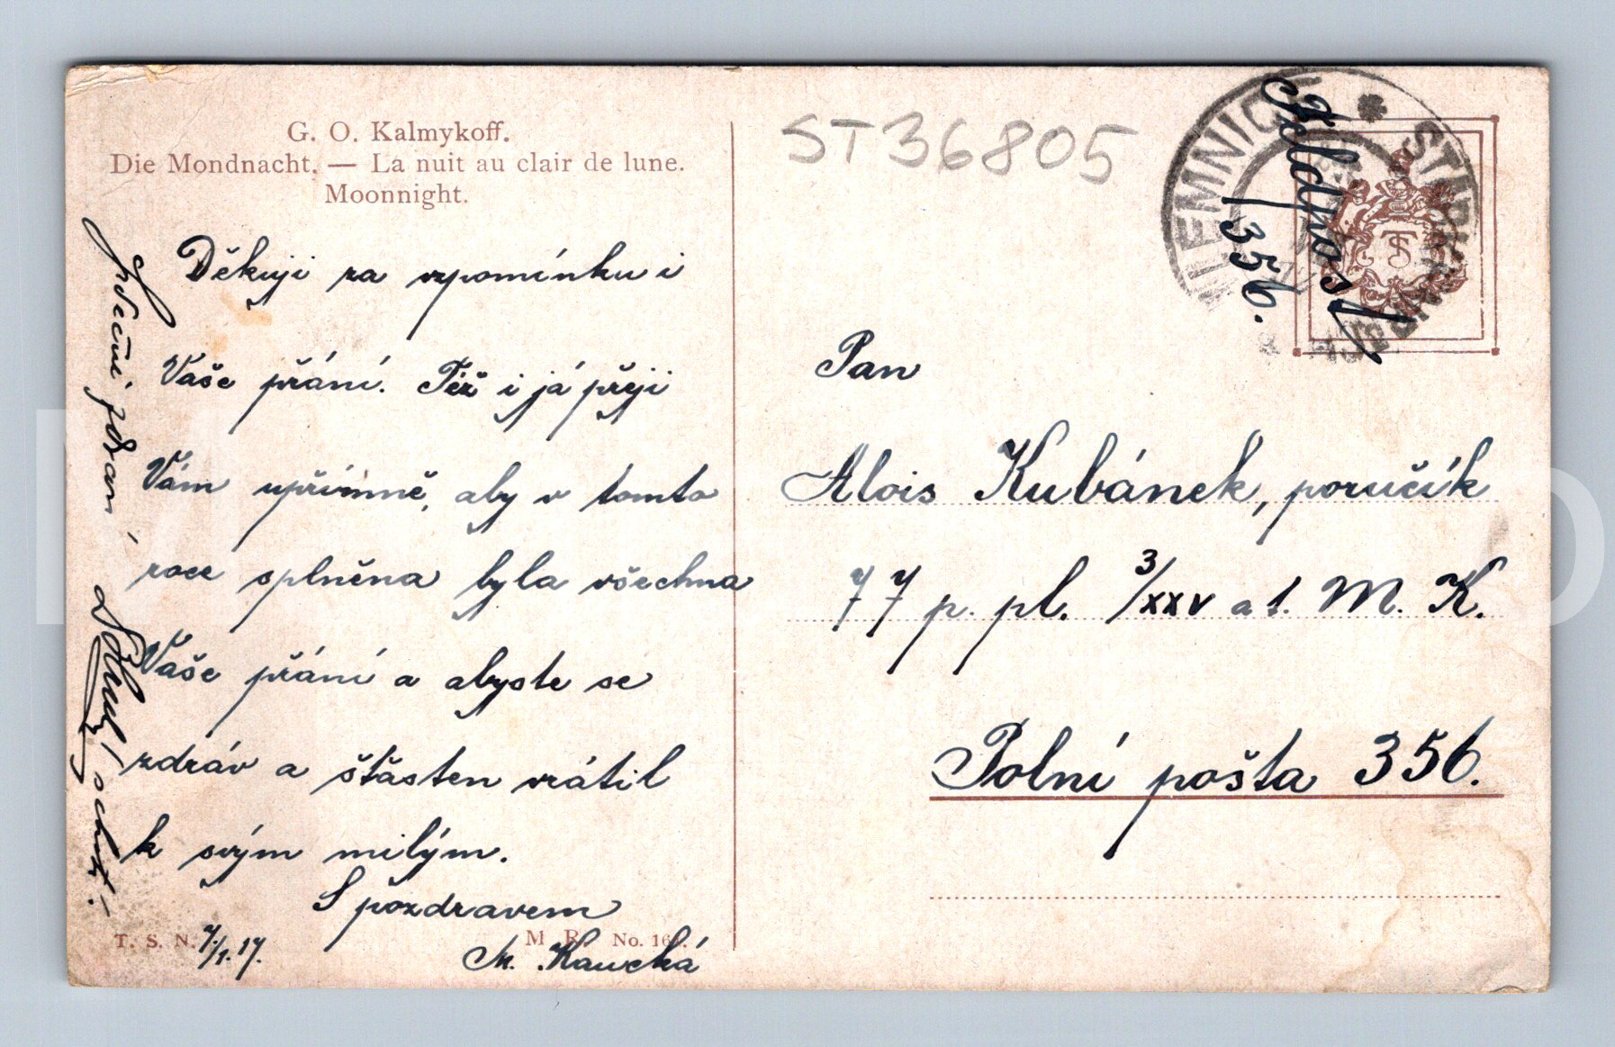 G. O. Kalmykoff.
Die Mondnacht. — La nuit au clair de lune.
Moonnight.
ST36805
Feldpost
356.
Děkuji za vzpomínku i
Vaše přání. Též i já přeji
Vám upřímně, aby v tomto
roce splněna byla všechna
Vaše přání a abyste se
zdráv a šťasten vrátil
k svým milým.
S pozdravem
M. Kaucká
T. S. N.
7./1.17.
M. R. No. 16
Srdečný zdraví
Pan
Alois Kubánek, poručík
77 p. pl. 3/xxv a 1. M. K.
Polní pošta 356.